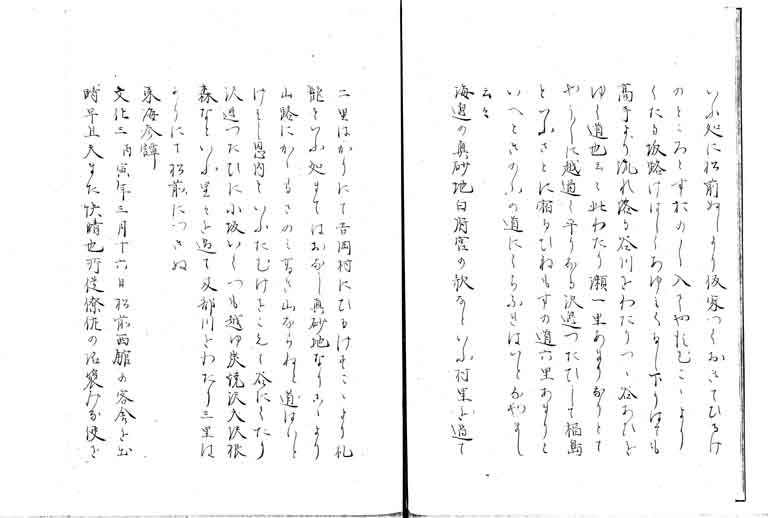 いふ処に松前ぬしより仮家つくおきてひるけ
のところとすたのしく入てやすむこゝより
くたる坂路けはしくあゆみくるし下りはても
高手より流れ落る谷川をわたりつゝ谷あひを
ゆく道也と云此わたり瀬一里あまりなりとて
やうしに越過し平らなる沢辺つたひして福島
といふさとに宿るひねもすの道六里あまりと
いへときのふの道にくらふれはいとたやすし
云々
海辺の真砂地白府宮の歌なといふ村里を過て
二里はかりにて吉岡村にひるけすこゝより礼
髭といふ処まてはおなし真砂地なりこゝより
山路にかゝるさのみ高き山ならねと道はいと
けはし恩内といふたむけをこえて谷にくたり
沢辺つたひに小坂いくつも越ゆ炭焼沢大沢根
森なといふ里々を過て及部川をわたり三里は
かりにて松前につきぬ
東海参譚
文化三丙寅年三月十六日松前西館の客舎を出
時早且天また快晴也所従僚佐の君裳みな使を